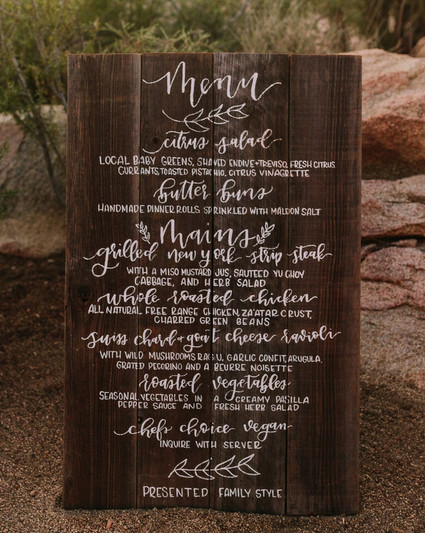 Menu
citrus salad
LOCAL BABY GREENS, SHAVED ENDIVE + TREVISO, FRESH CITRUS
CURRANTS, TOASTED PISTACHIO, CITRUS VINAIGRETTE
butter buns
HANDMADE DINNER ROLLS SPRINKLED WITH MALDON SALT
Mains
grilled new york strip steak
WITH A MISO MUSTARD JUS, SAUTEED YU CHOY
CABBAGE, AND HERB SALAD
whole roasted chicken
ALL NATURAL FREE RANGE CHICKEN, ZA'ATAR CRUST,
CHARRED GREEN BEANS
swiss chard + goat cheese ravioli
WITH WILD MUSHROOMS RAGU, GARLIC CONFIT, ARUGULA,
GRATED PECORINO AND A BEURRE NOISETTE
roasted vegetables
SEASONAL VEGETABLES IN A CREAMY PASILLA
PEPPER SAUCE AND FRESH HERB SALAD
chefs choice vegan
INQUIRE WITH SERVER
PRESENTED FAMILY STYLE